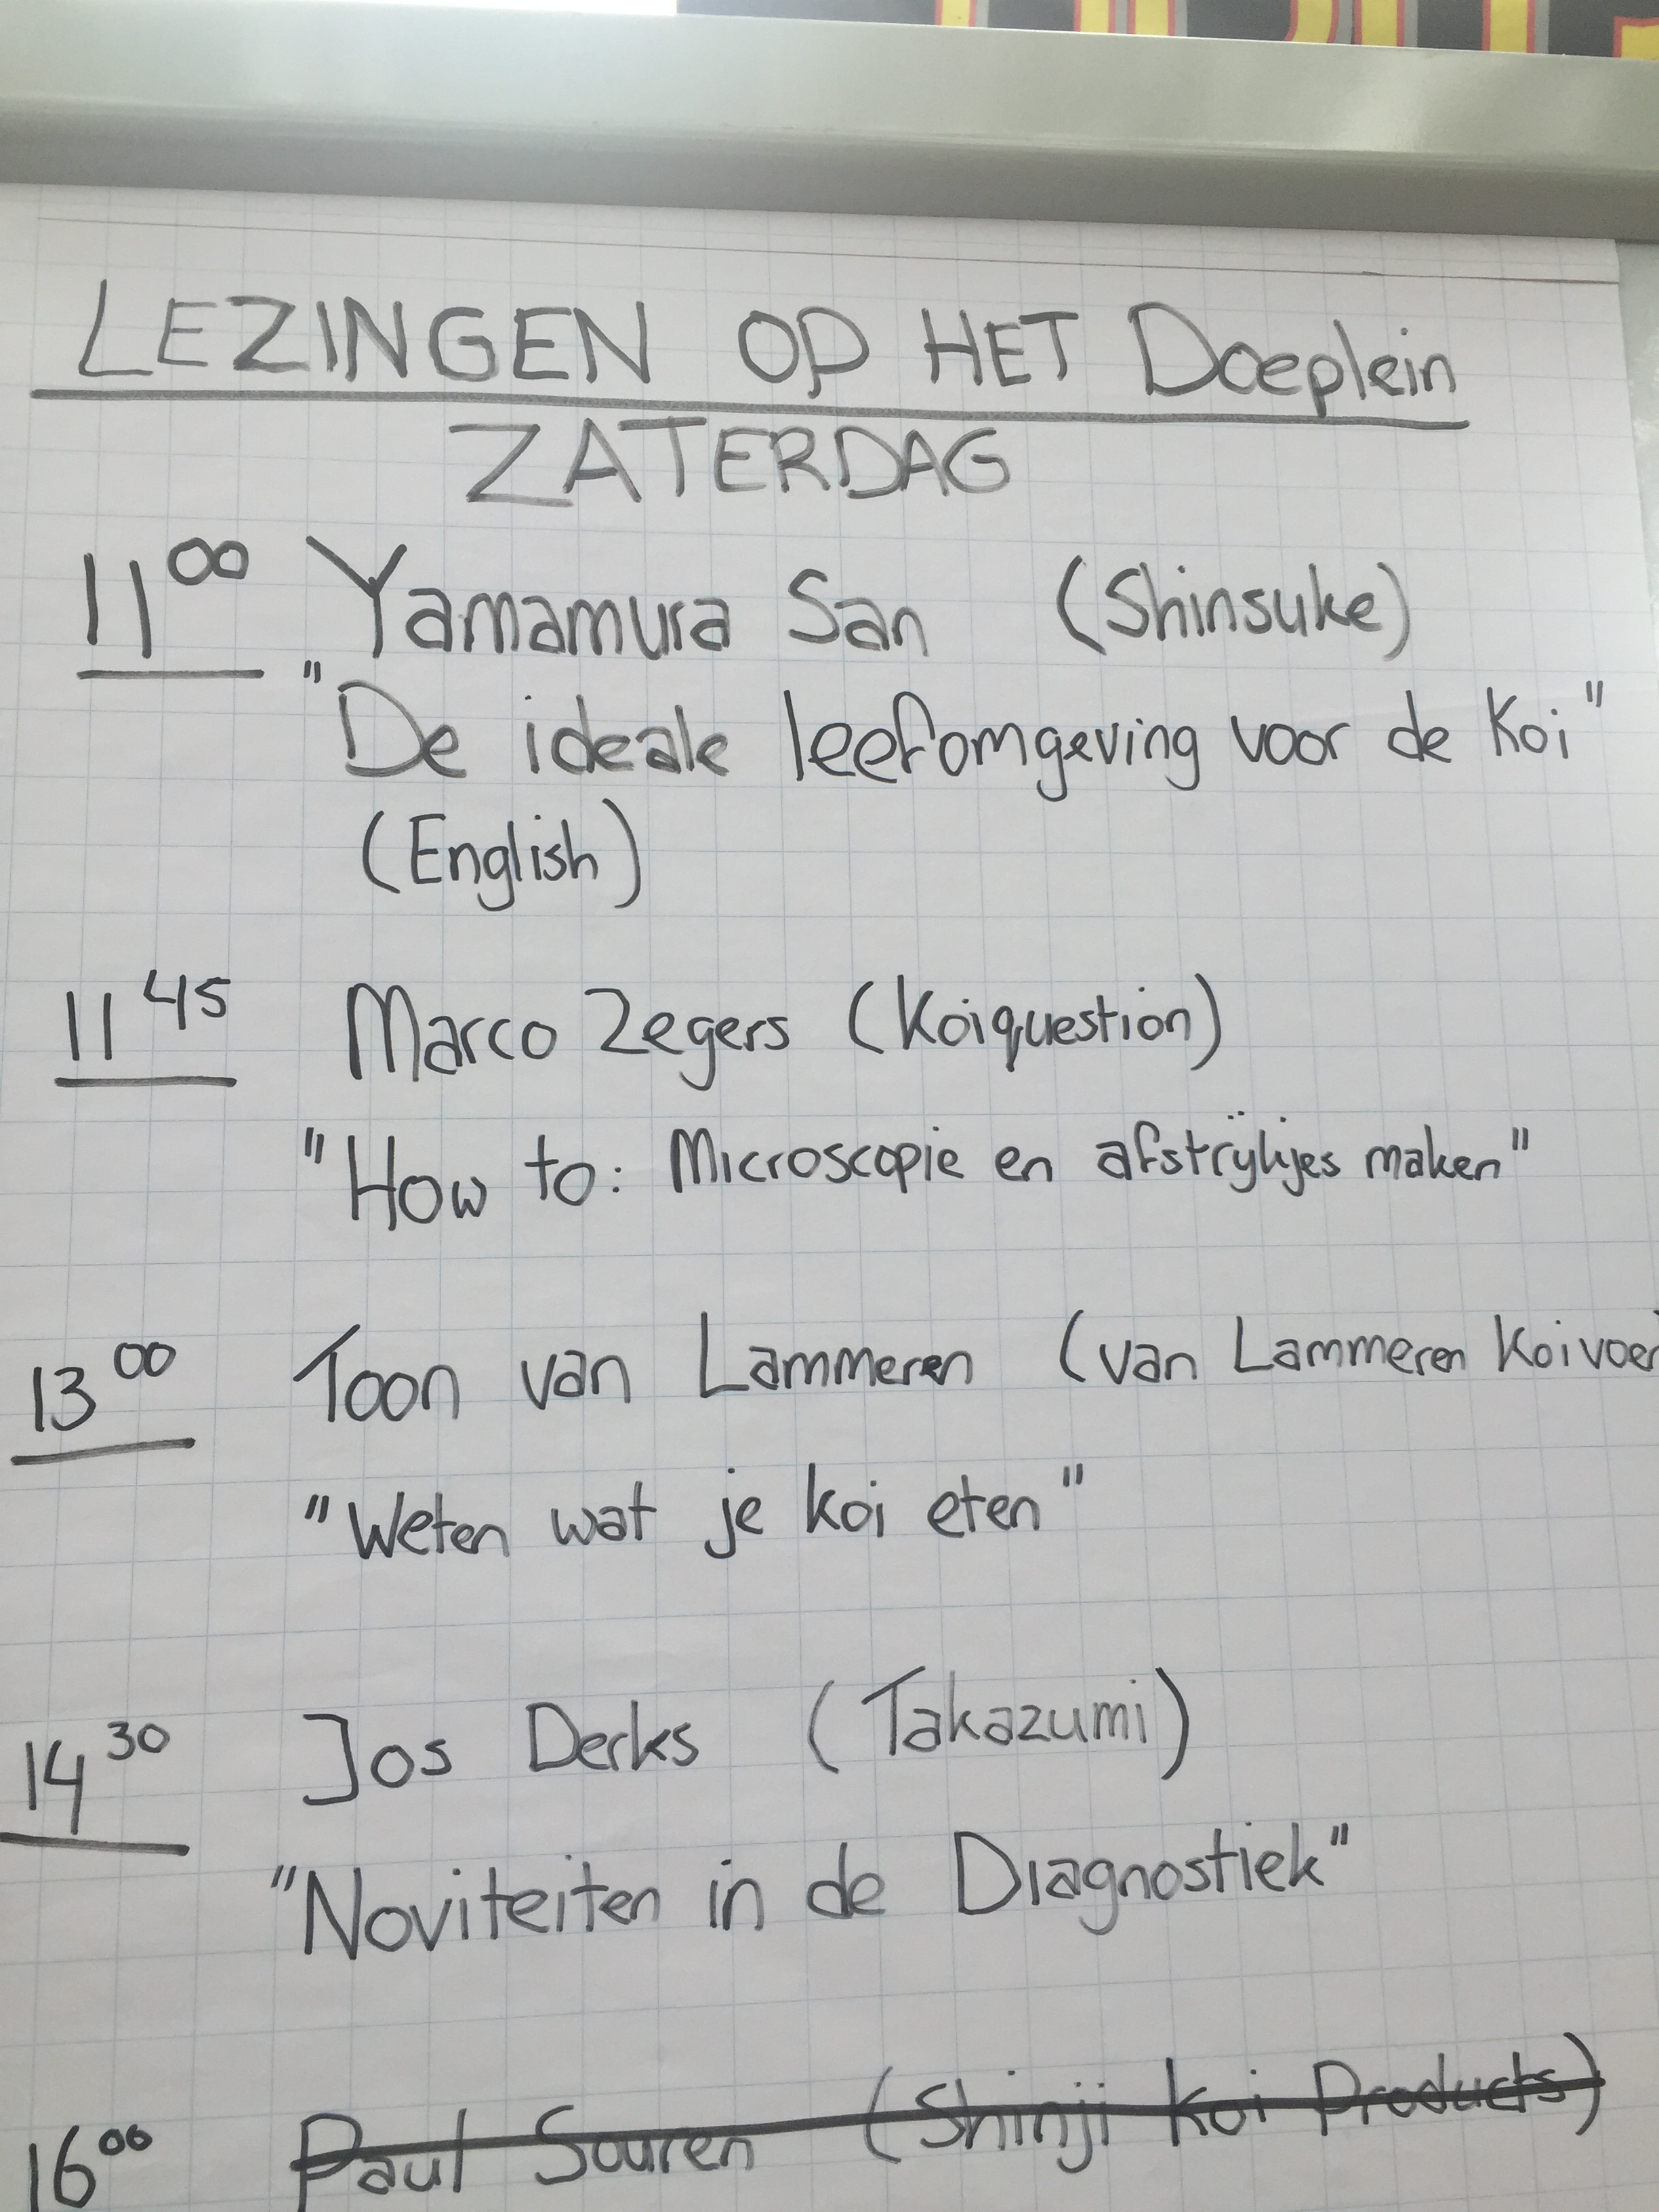 LEZINGEN OP HET Doeplein
ZATERDAG
11 00 Yamamura San (Shinsuke)
"De ideale leefomgeving voor de Koi"
(English)
11 45 Marco Zegers (Koiquestion)
"How to: Microscopie en afstrijkjes maken"
13 00 Toon van Lammeren (van Lammeren Koivoer
"Weten wat je koi eten"
14 30 Jos Derks (Takazumi)
"Noviteiten in de Diagnostiek"
16 00 Paul Souren (Shinji Koi Products)